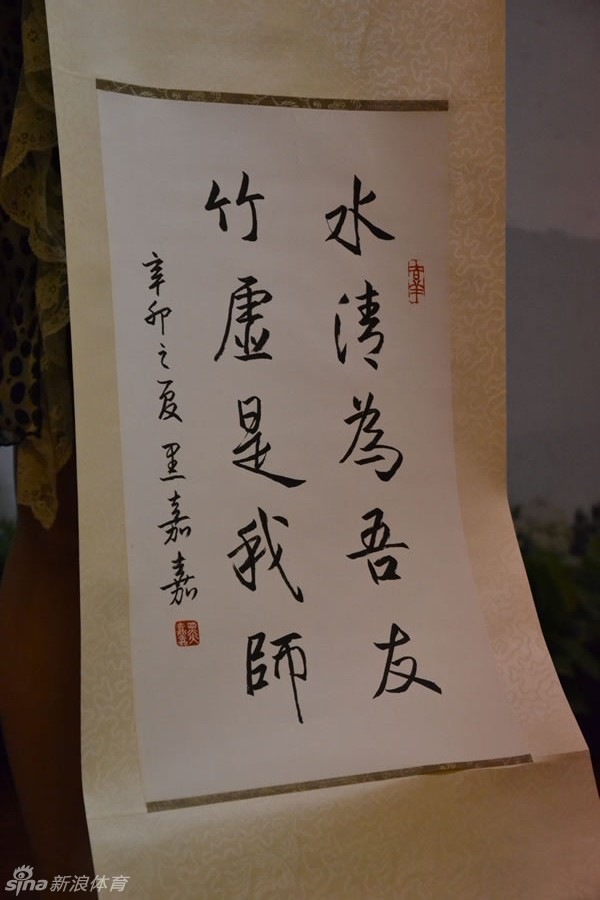 水清為吾友
竹虛是我師
辛卯之夏 黑嘉嘉
sina新浪体育